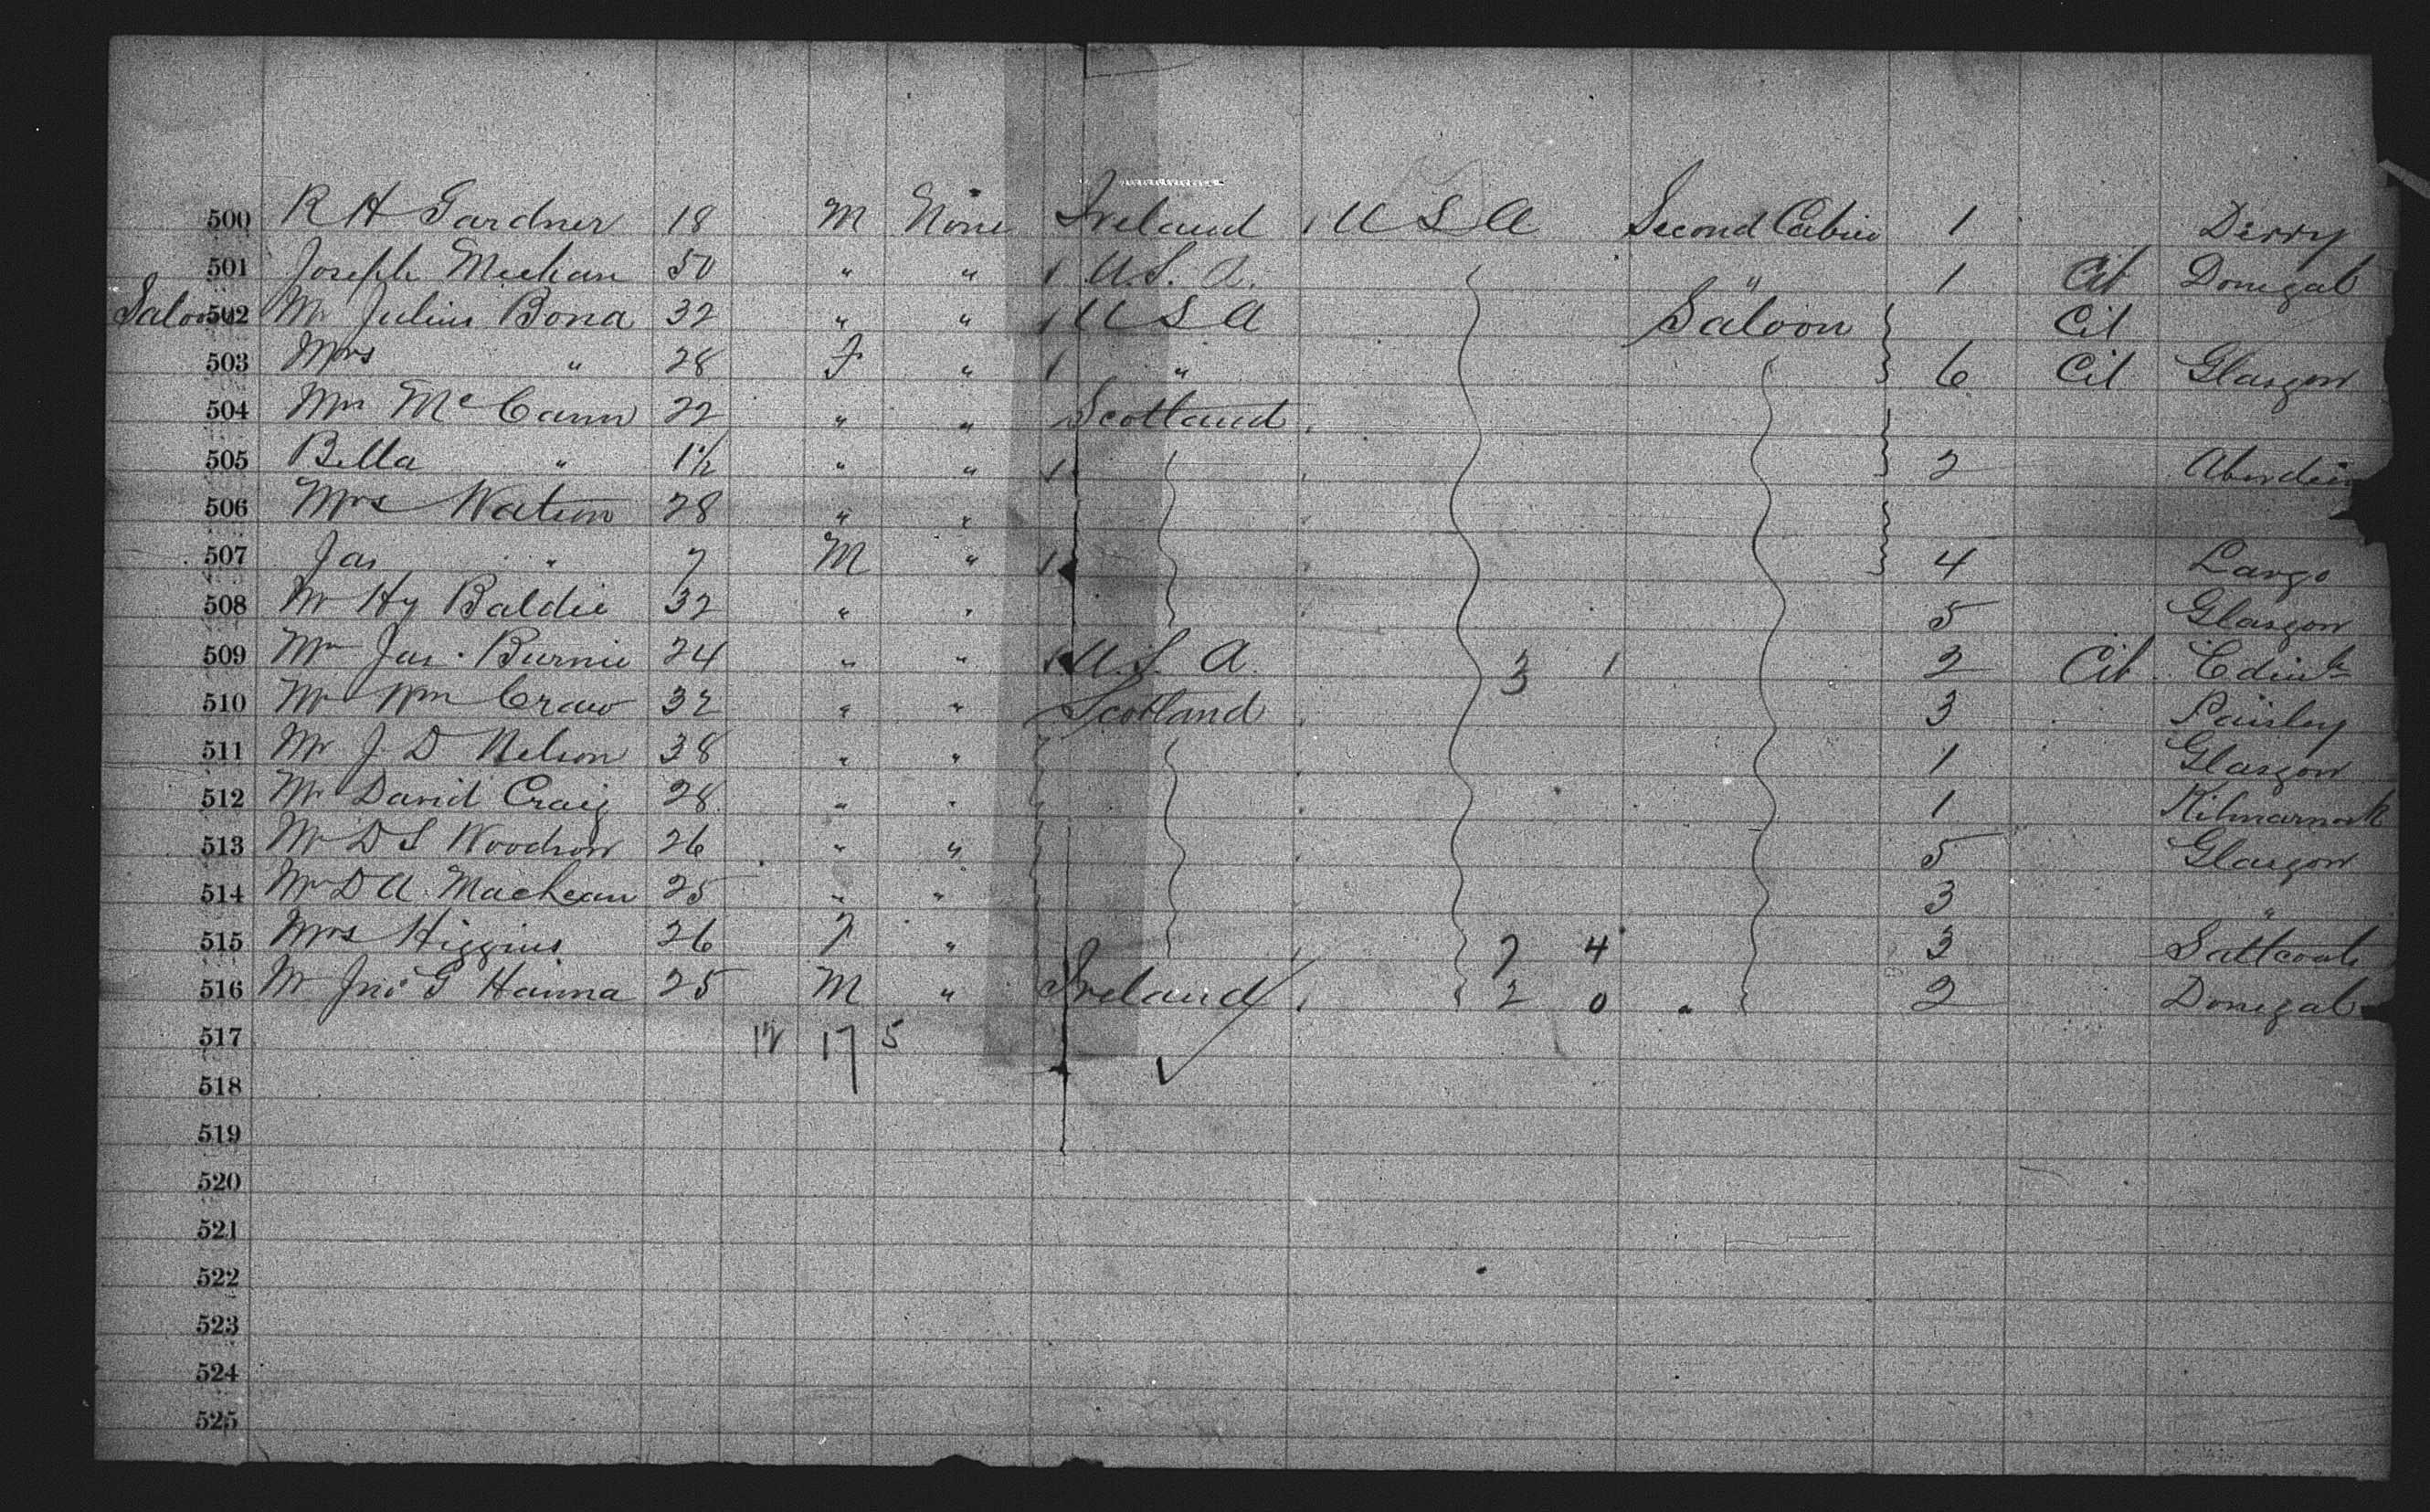 500 R H Gardner 18 M None Ireland 1 U S A Second Cabin 1 Derry
501 Joseph Meehan 50 " " 1 U.S.A. " 1 Cit Donegal
Saloon 502 Mr Julius Bona 32 " " 1 U S A Saloon Cit
503 Mrs " 28 F " 1 " 6 Cit Glasgow
504 Mrs McCann 22 " " Scotland
505 Bella " 1½ " " 1 2 Aberdeen
506 Mrs Watson 28 " "
507 Jas " 7 M " 1 4 Largo
508 Mr Hy Baldie 32 " " 5 Glasgow
509 Mr Jas. Burnie 24 " " 1 U.S.A. 3 1 2 Cit Edinb
510 Mr Wm Craw 32 " " Scotland 3 Paisley
511 Mr J. D Nelson 38 " " 1 Glasgow
512 Mr David Craig 28 " " 1 Kilmarnock
513 Mr D S Woodrow 26 " " 5 Glasgow
514 Mr D A. MacLean 25 " " 3 "
515 Mrs Higgins 26 F " 7 4 3 Saltcoats
516 Mr Jno G Hanna 25 M " Ireland 2 0 " 2 Donegal
517 12 17 5
518
519
520
521
522
523
524
525